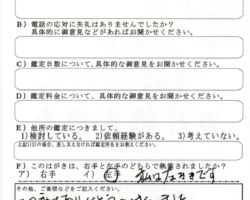 B）電話の応対に失礼はありませんでしたか？
具体的に御意見などがあればお聞かせください。
C）鑑定日数について、具体的な御意見をお聞かせください。
D）鑑定料金について、具体的な御意見をお聞かせください。
E）他所の鑑定につきまして、
1)検討している。 2)依頼経験がある。 3)考えていない。
上記1)2)の場合、差し支えなければ鑑定所名をお教えください。
F）このはがきは、右手と左手のどちらで執筆されましたか？
ア）右手 イ）左手 私は左ききです
その他、ご要望などをご記入ください。